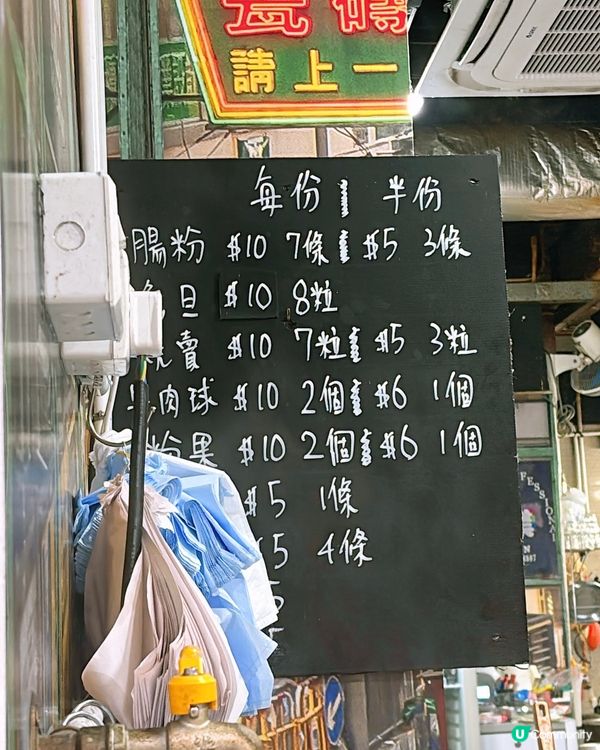 瓷磚
請上一
每份 半份
腸粉 $10 7條 $5 3條
旦 $10 8粒
賣 $10 7粒 $5 3粒
肉球 $10 2個 $6 1個
粉果 $10 2個 $6 1個
$5 1條
5 4條
U Community